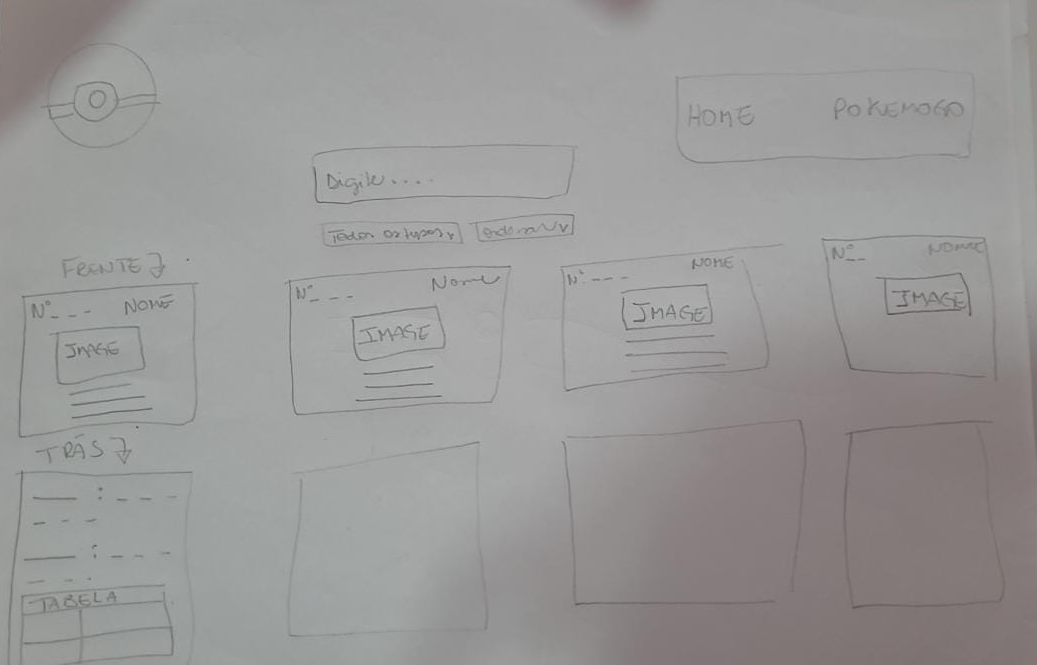 HOME POKEMOGO
Digite....
Todos os tipos v ordenar v
FRENTE
Nº_ _ _ NOME
IMAGE
Nº_ _ _ Nome
IMAGE
Nº_ _ _ NOME
IMAGE
Nº_ _ NOME
IMAGE
TRÁS
TABELA